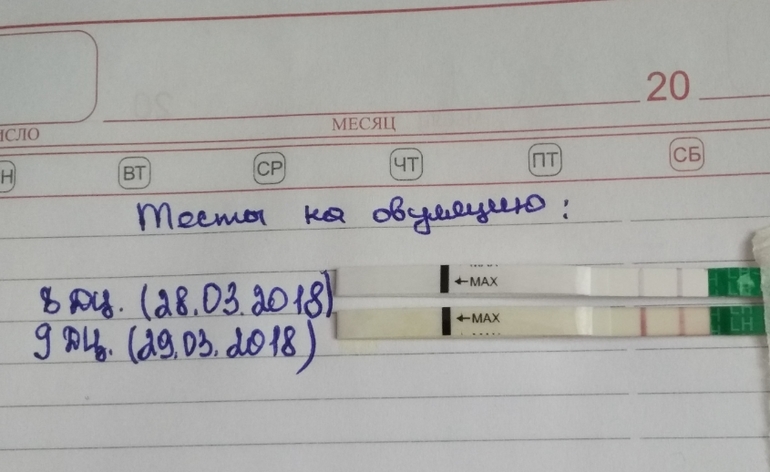 20
ИСЛО
МЕСЯЦ
Н ВТ СР ЧТ ПТ СБ
Тесты на овуляцию:
8 ДЦ. (28.03.2018)
←MAX
9 ДЦ. (29.03.2018)
←MAX
LH